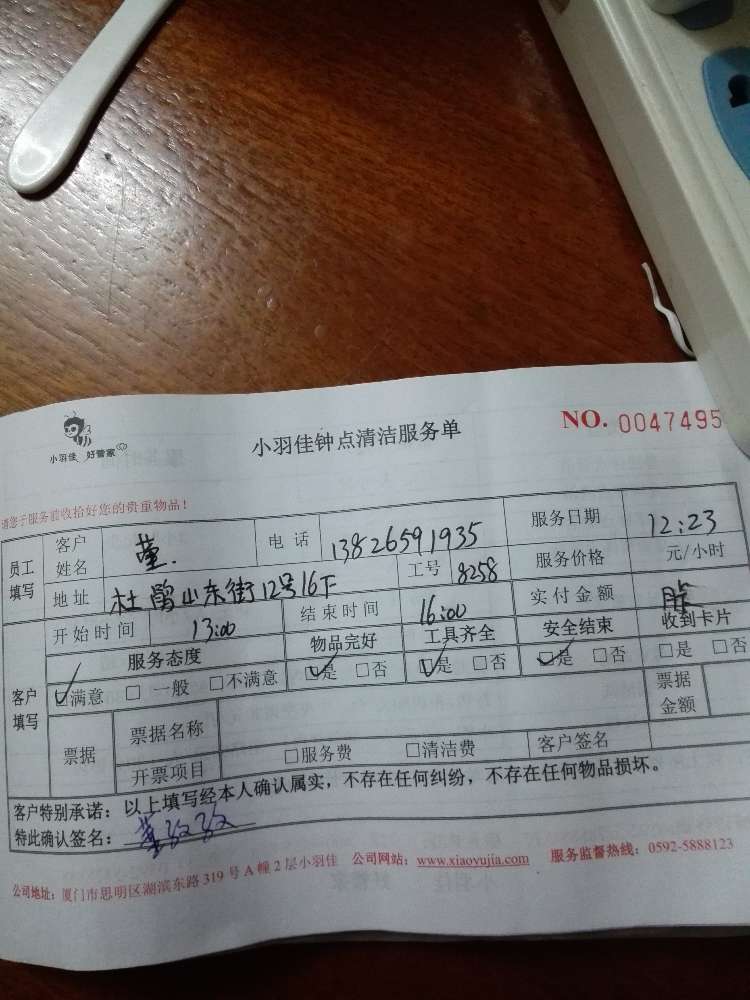 小羽佳 好管家
小羽佳钟点清洁服务单
NO. 0047495
请您于服务前收拾好您的贵重物品!
员工填写 客户姓名 董. 电话 13826591935 服务日期 12:23
地址 山东街12号16下 工号 8258 服务价格 元/小时
开始时间 13:00 结束时间 16:00 实付金额
客户填写 服务态度 物品完好 工具齐全 安全结束 收到卡片
☑满意 □一般 □不满意 ☑是 □否 ☑是 □否 ☑是 □否 □是 □否
票据 票据名称 票据金额
开票项目 □服务费 □清洁费 客户签名
客户特别承诺: 以上填写经本人确认属实,不存在任何纠纷,不存在任何物品损坏。
特此确认签名: 董
公司地址: 厦门市思明区湖滨东路 319 号 A 幢 2 层小羽佳 公司网站: www.xiaoyujia.com 服务监督热线: 0592-5888123